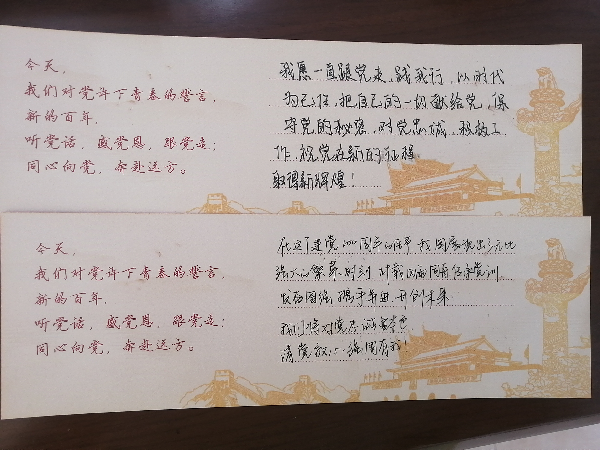 今天，
我们对党许下青春的誓言，
新的百年，
听党话，感党恩，跟党走；
同心向党，奔赴远方。
我愿一直跟党走，践我行，以时代
为己任，把自己的一切献给党，保
守党的秘密，对党忠诚，积极工
作，祝党在新的征程
取得新辉煌！
今天，
我们对党许下青春的誓言，
新的百年，
听党话，感党恩，跟党走；
同心向党，奔赴远方。
在这个建党100周年的 我国家
强大的繁荣时刻
发奋图强，携手并进，开创未来
我们将对党忠诚
请党放心 强国有我！